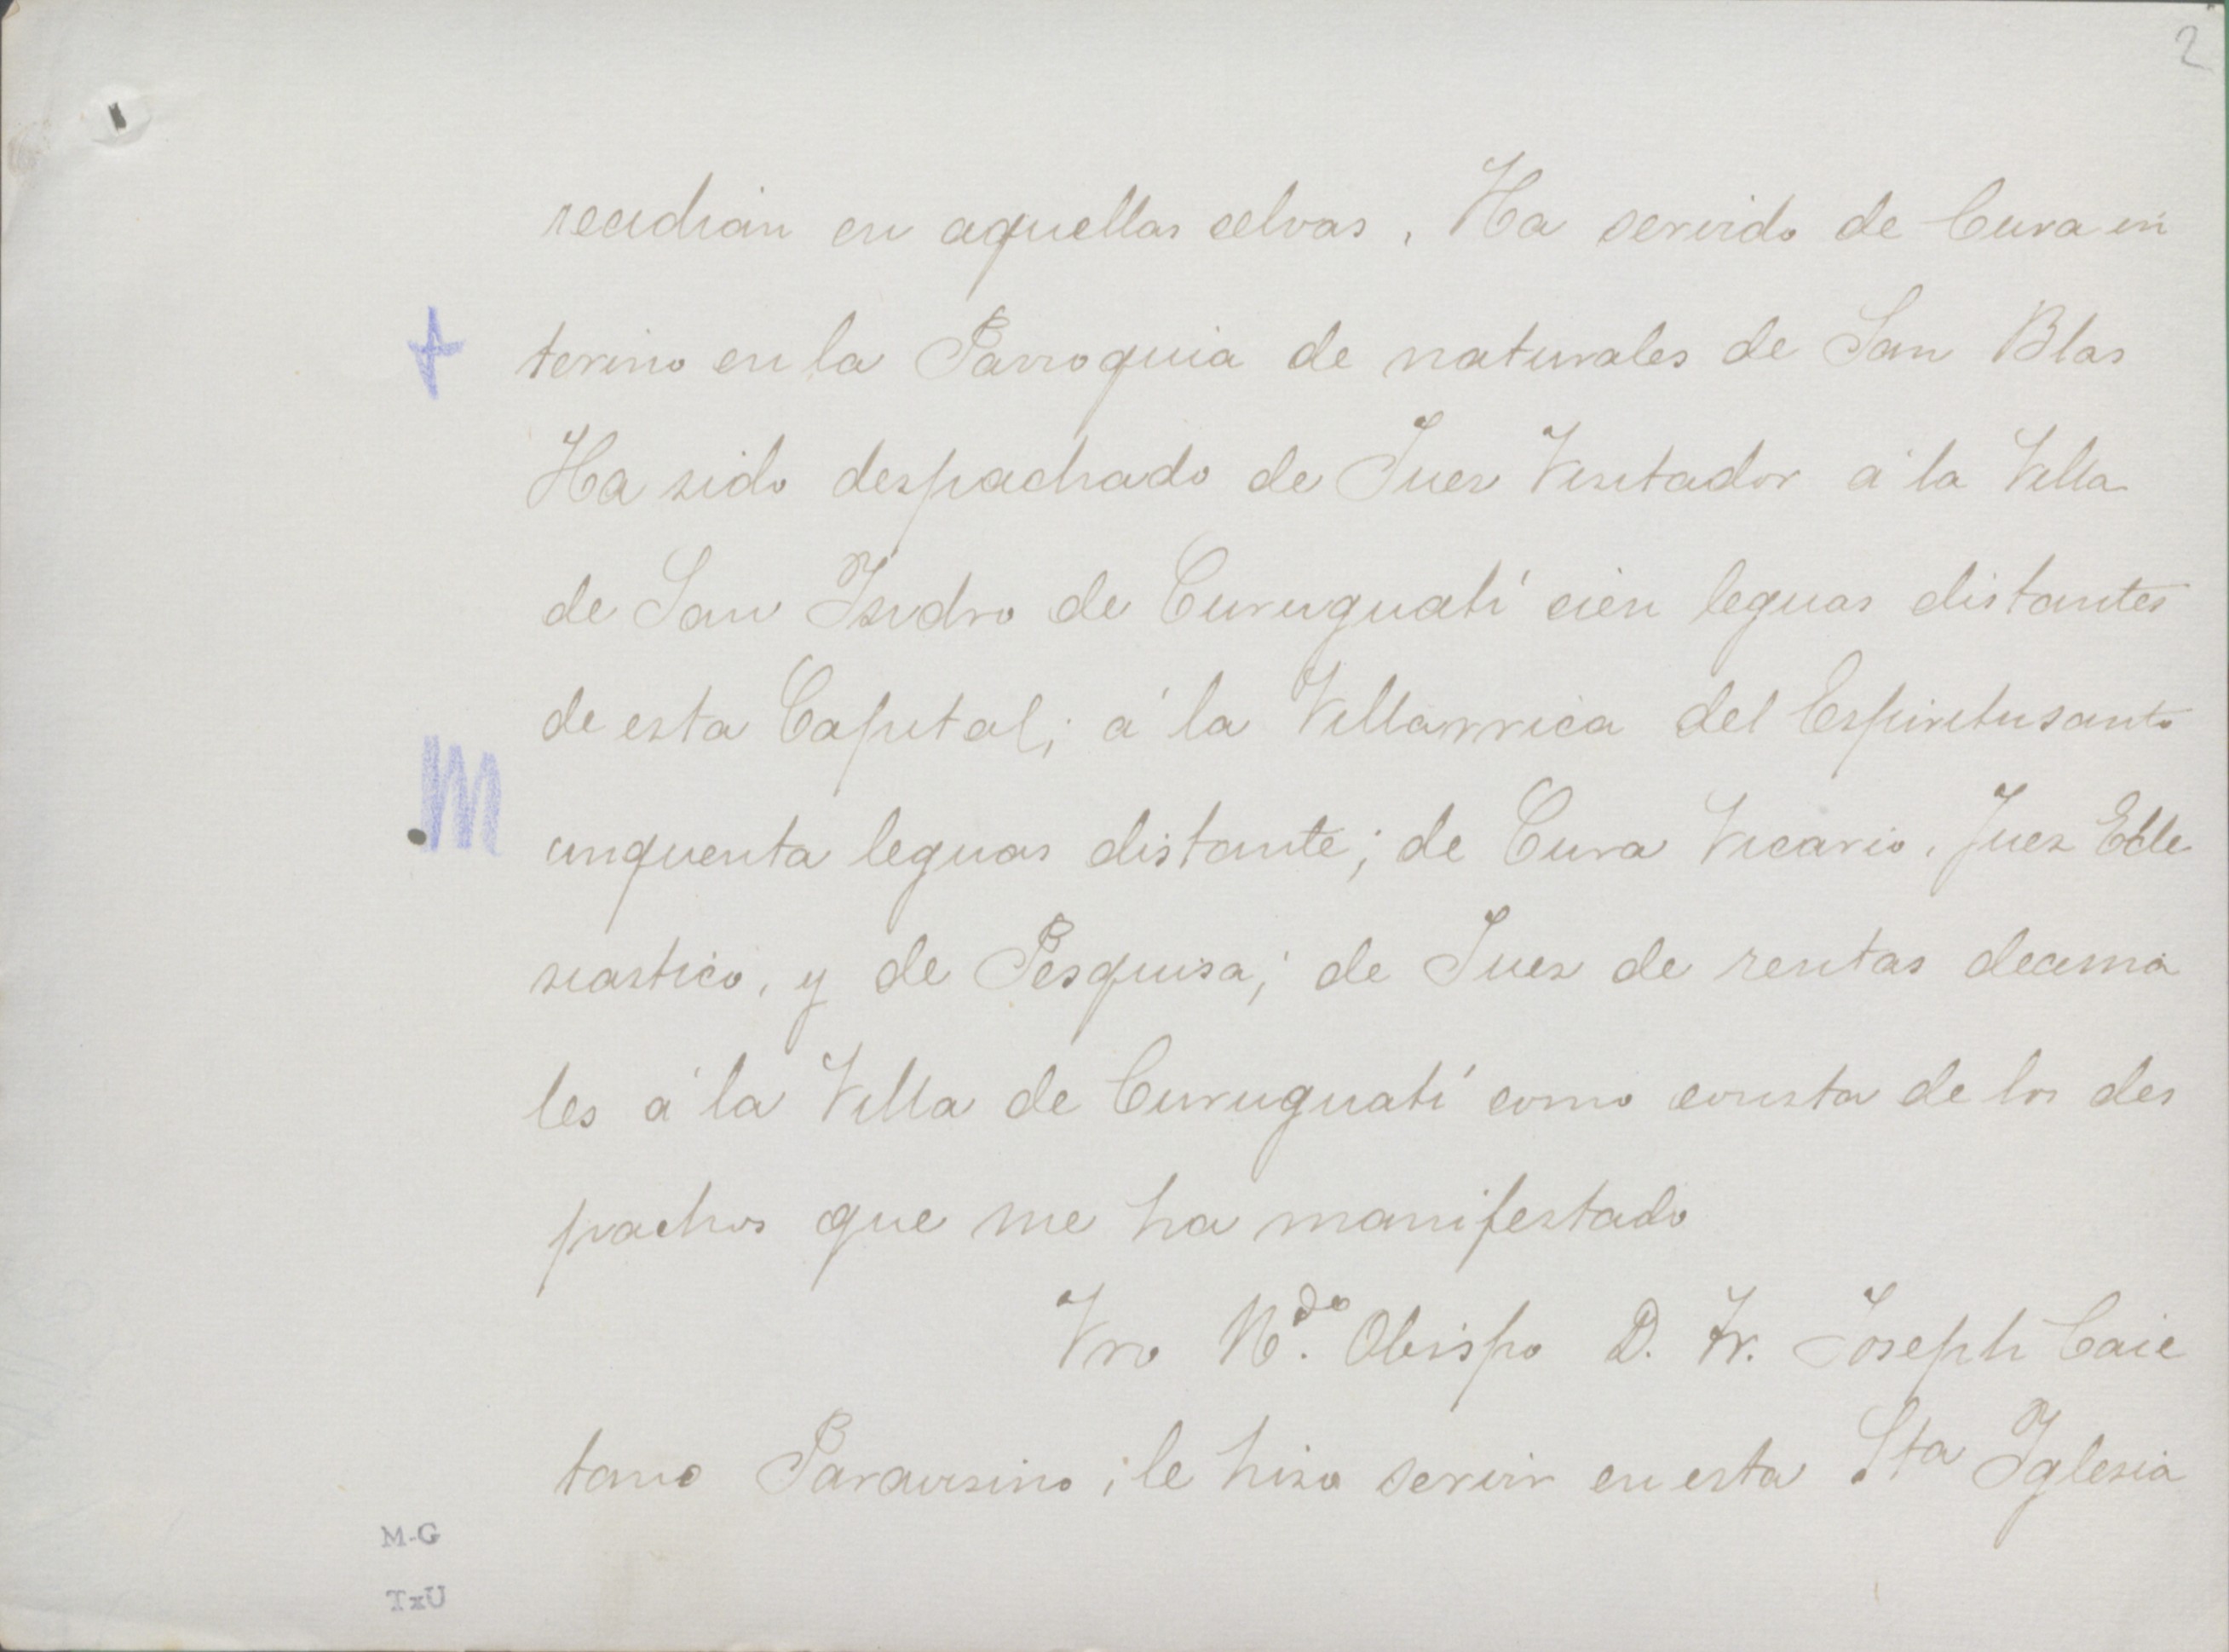 2
recidian en aquellas selvas. Ha servido de Cura in
terino en la Parroquia de naturales de San Blas
Ha sido despachado de Juez Visitador á la Villa
de San Isidro de Curuguatí cien leguas distantes
de esta Capital; á la Villarrica del Espiritusanto
cinquenta leguas distante; de Cura Vicario, Juez Ecle
siastico, y de Pesquisa; de Juez de rentas decima
les á la Villa de Curuguatí como consta de los des
pachos que me ha manifestado
Vro Rdo. Obispo D. Fr. Joseph Caie
tano Paravisino; le hizo servir en esta Sta Iglesia
M-G
TxU